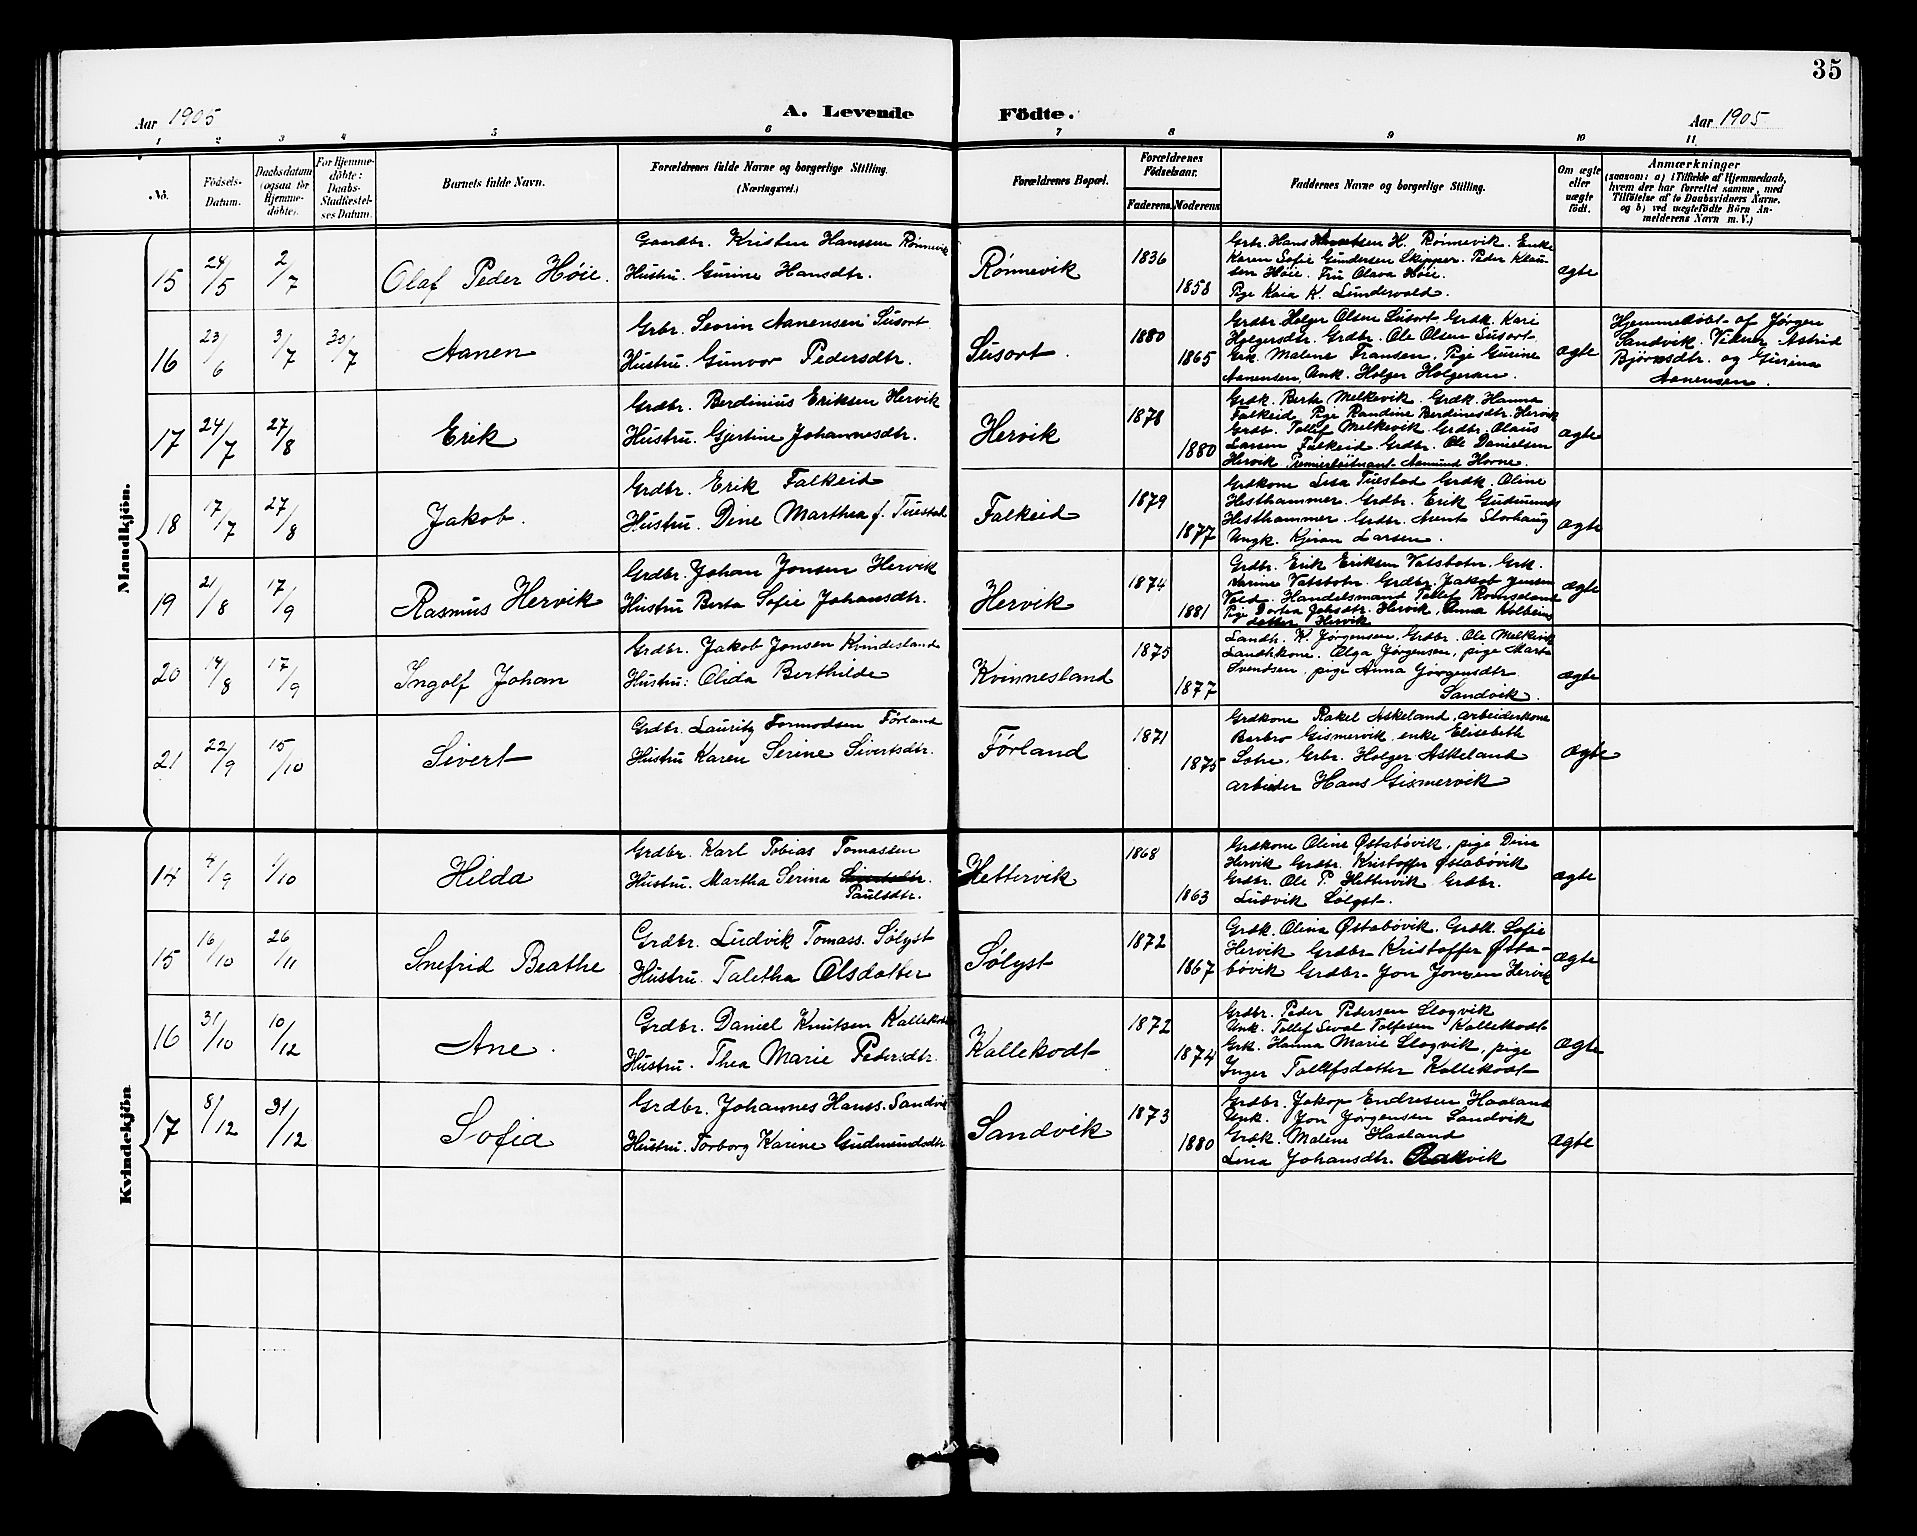 35
Aar 1905
A. Levende
Födte.
Aar 1905
1 2 3 4 5 6 7 8 9 10 11
No.
Födsels-
Datum.
Daabsdatum
(ogsaa for
Hjemme-
döbte).
For Hjemme-
døbte:
Daabs-
Stadfæstel-
ses Datum.
Barnets fulde Navn.
Forældrenes fulde Navne og borgerlige Stilling.
(Næringsvei.)
Forældrenes Bopæl.
Forældrenes
Födselsaar.
Faderens. Moderens.
Faddernes Navne og borgerlige Stilling.
Om ægte
eller
uægte
født.
Anmærkninger
(saasom: a) i Tilfælde af Hjemmedaab,
hvem der har forrettet samme, med
Tilföielse af to Daabsvidners Navne.
og b) ved uægtefödte Börn An-
melderens Navn m. V.)
Mandkjön.
15 24/5 2/7 Olaf Peder Höie.
Gaardbr. Kristen Hanssen Rønnevik
Hustru. Gurine Hansdtr.
Rønnevik 1836 1858
Grbr. Hans H. Rønnevik. Enke
Karen Sofie Gundersen Skipper. Peder Klau-
sen Höie. Fru Olava Höie.
Pige Kaia K. Lundevold.
ægte
16 23/6 3/7 30/7 Aanen
Grbr. Sevrin Aanensen Susort
Hustru. Gunvor Pedersdtr.
Susort. 1880 1865
Grdbr Holger Olsen Susort Grdk. Kari
Holgersdtr. Grdbr. Ole Olsen Susort.
Grk. Malene Fransen. Pige Gurine
Aanensen, Unk. Holger Holgersen.
ægte
Hjemmedöbt af Jørgen
Sandvik. Vidner Astrid
Bjørnsdtr. og Gurina
Aanensen.
17 24/7 27/8 Erik
Grdbr. Berdinius Eriksen Hervik
Hustru. Gjertine Johannesdtr.
Hervik 1878 1880
Grdk. Berta Melkevik. Grdk Hanna
Falkeid Pige Randine Berdinesdtr. Hervik
Grdbr. Tollef Melkevik. Grdbr. Olaus
Larsen Falkeid. Grdbr. Ole Danielsen
Hervik. Premierløitnant Aamund Hovne.
ægte
18 17/7 27/8 Jakob.
Grdbr. Erik Falkeid
Hustru. Dine Marthea f. Tuestad
Falkeid 1879 1877
Grdkone Lisa Tuestad Grdk. Oline
Hesthammer. Grdbr. Erik Gudmunds
Hesthammer. Grdbr. Arent Storhaug
Ungk. Larsen.
ægte
19 21/8 17/9 Rasmus Hervik
Grdbr. Johan Jonsen Hervik
Hustru Berta Sofie Johansdtr.
Hervik 1874 1881
Grdbr. Erik Eriksen Vatsbotn. Grk.
Serine Vatsbotn. Grdbr. Jakob Jensen
Vold. Handelsmand Tollef
Pige Dortea Johsdtr. Hervik, Anna Kolbeins
datter Hervik
ægte
20 14/8 17/9 Ingolf Johan
Grdbr. Jakob Jonsen Kvindesland
Hustru: Olida Berthilde
Kvinnesland 1875 1877
Landh. K. Jørgensen. Grdbr. Ole Melkevik
Landhkone. Olga Jørgensen, pige Marta
Svendsen pige Anna Jørgensdtr
Sandvik.
ægte
21 22/9 15/10 Sivert
Grdbr. Lauritz Tormodsen Førland
Hustru Karen Serine Sivertsdtr.
Førland 1871 1875
Grdkone Rakel Askeland. arbeiderkone
Barbro Gismervik. enke Elisebeth
Sohn. Grbr. Holger Askeland
arbeider Hans Gismervik
ægte
Kvindekjön
14 4/9 1/10 Hilda
Grdbr. Karl Tobias Tomassen
Hustru. Martha Serina
Paulsdtr.
Hettervik 1868 1863
Grdkone Oline Østabøvik, pige Dina
Hervik Grdbr. Kristoffer Østabøvik
Grdbr. Ole P. Hettervik Grdbr.
Ludvik Sølyst.
ægte
15 16/10 26/11 Snefrid Beathe
Grdbr. Ludvik Tomass. Sølyst
Hustru. Taletha Olsdatter
Sølyst 1872 1867
Grdk. Olina Østabøvik. Grdk. Sofie
Hervik Grdbr. Kristoffer Østa-
bøvik Grdbr. Jon Jonsen Hervik
ægte
16 31/10 10/12 Ane.
Grdbr. Daniel Knutsen Kallekodt
Hustru. Thea Marie Pedersdtr.
Kallekodt 1872 1874
Grdbr. Peder Pedersen Slogvik
Unk. Tollef Seval Tolfesen Kallekodt
Grk. Hanna Marie Slogvik, pige
Inger Tollefsdatter Kallekodt
ægte
17 8/12 31/12 Sofia
Grdbr. Johannes Hanss. Sandvik
Hustru. Torborg Karine Gudmundsdtr
Sandvik 1873 1880
Grdbr. Jakop Endresen Haaland
Unk. Jon Jørgensen Sandvik
Grdk. Malene Haaland
Lina Johansdtr.
ægte